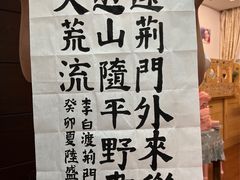 遠荊門外來從
遊山隨平野盡
大荒流
李白渡荊門
癸卯夏陸盛